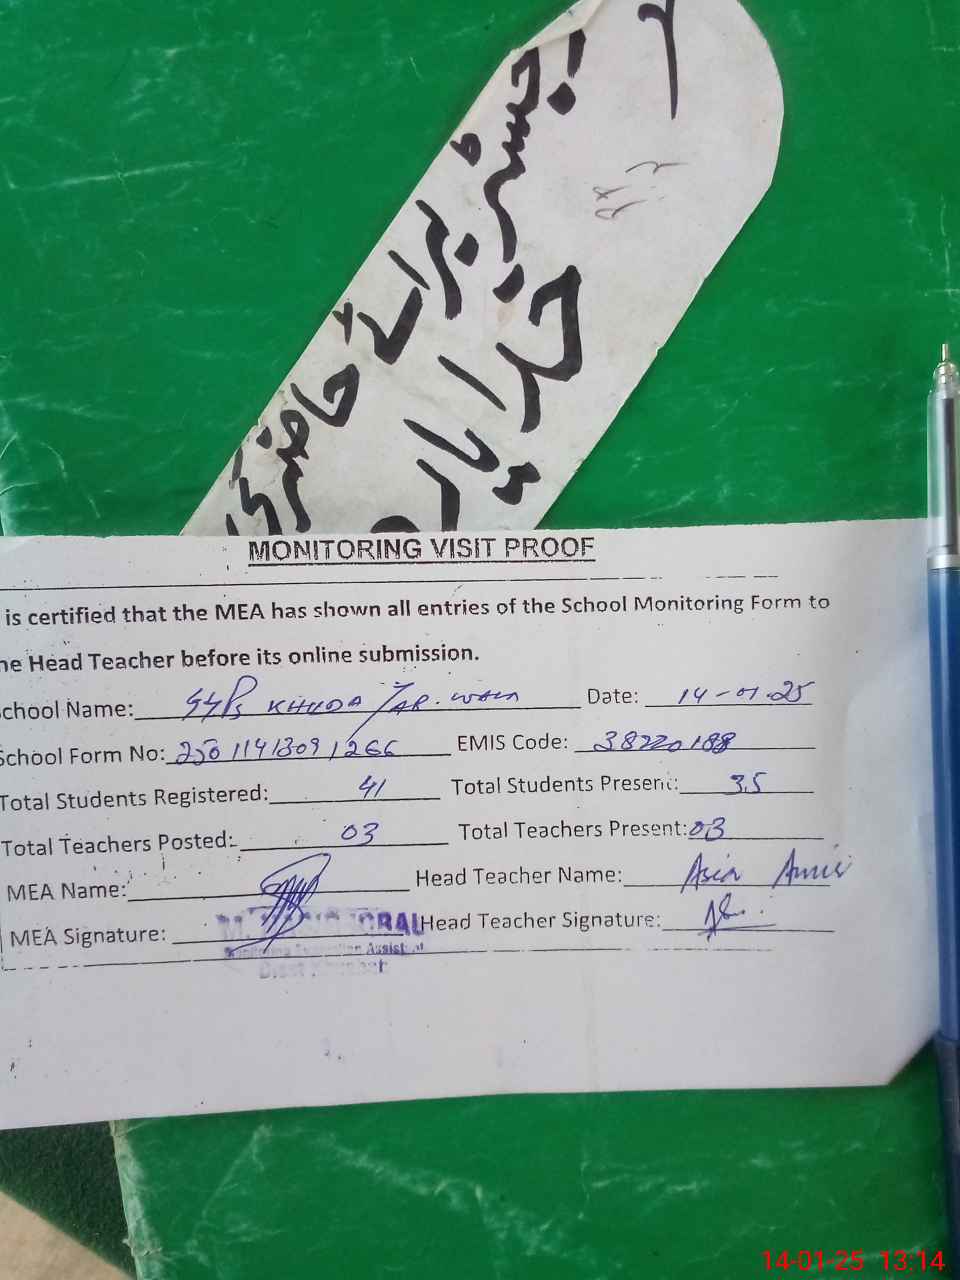 رجسٹر برائے حاضری
خدا یار
MONITORING VISIT PROOF
is certified that the MEA has shown all entries of the School Monitoring Form to
he Head Teacher before its online submission.
chool Name: GGPS KHUDA YAR. WALA Date: 14-01-25
School Form No: 2501141309 1266 EMIS Code: 38220188
Total Students Registered: 41 Total Students Present: 35
Total Teachers Posted: 03 Total Teachers Present: 03
MEA Name: Head Teacher Name: Asia
MEA Signature: IQBAL Head Teacher Signature:
Monitoring Evaluation Assistant
14-01-25 13:14